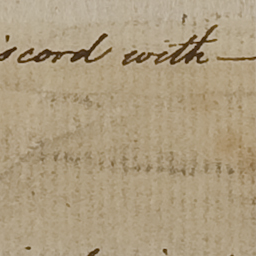 iscord with —